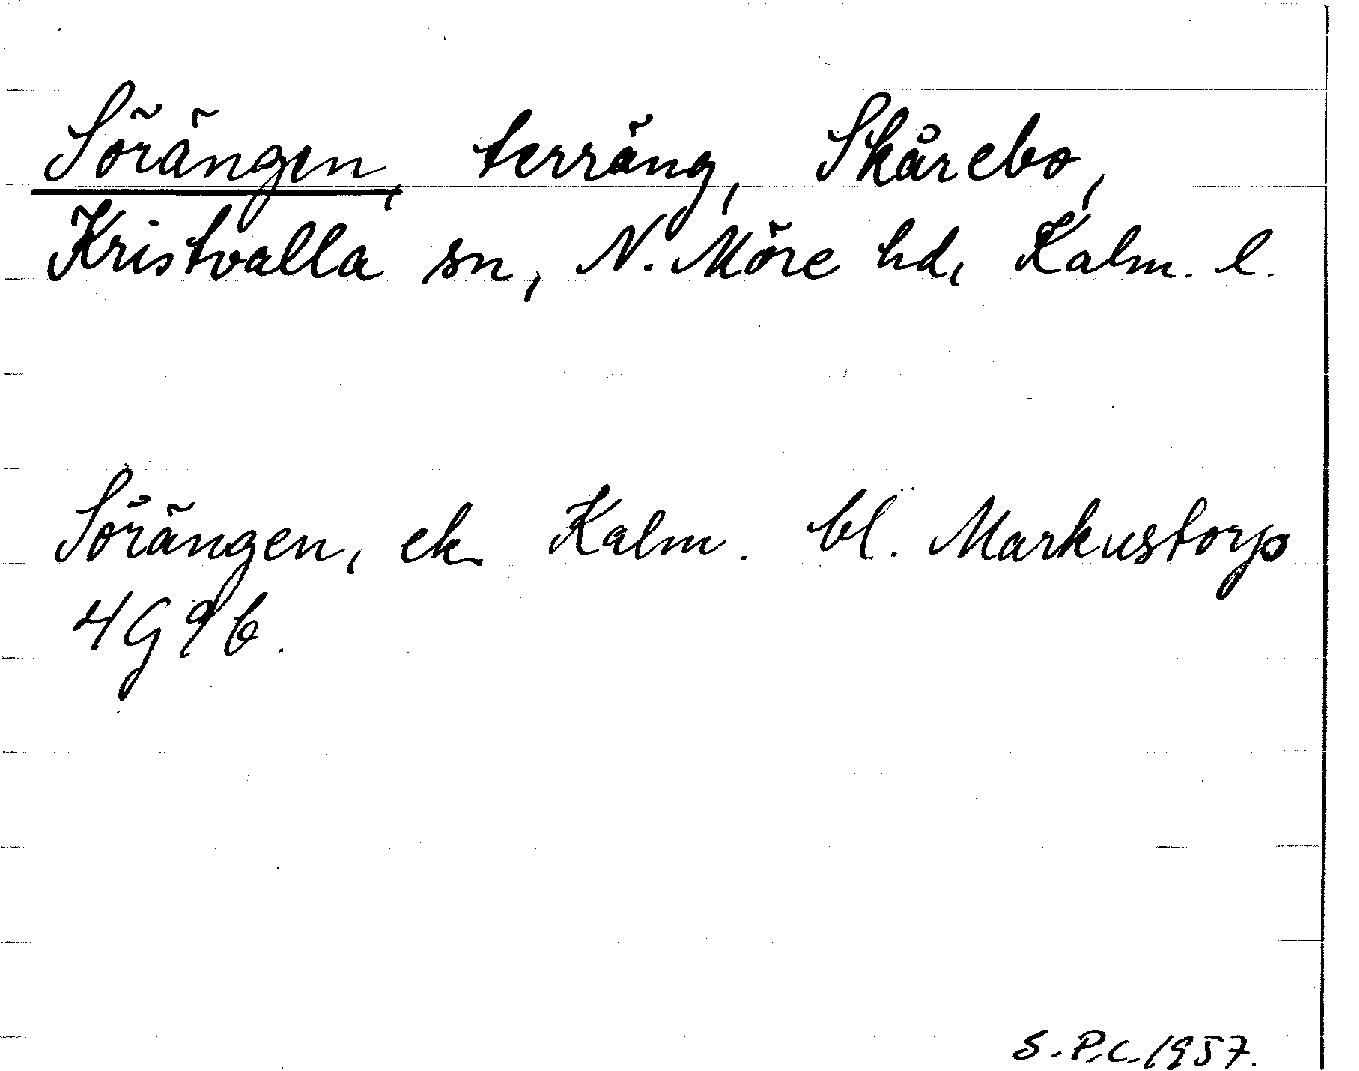 Sörängen, terräng, Skårebo,
Kristvalla sn, N. Möre hd, Kalm. l.
Sörängen, ek Kalm. bl. Markustorp
4G9b.
S.P.C. 1957.